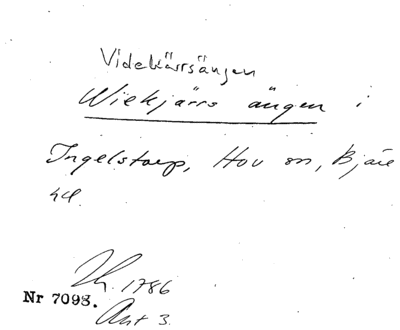 Videkärrsängen
Wiekjärrs ängen i
Ingelstorp, Hov sn, Bjäre
hd.
1786
Nr 7098.
Akt 3.